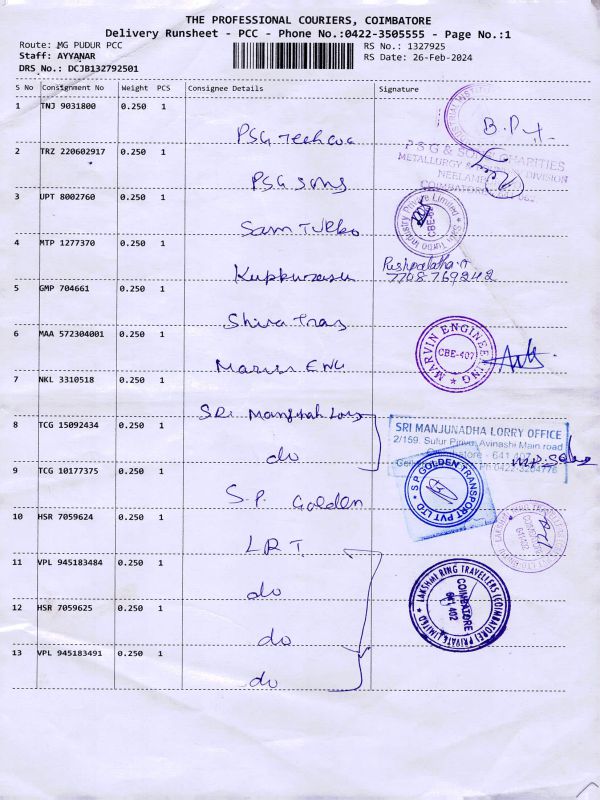 THE PROFESSIONAL COURIERS, COIMBATORE
Delivery Runsheet - PCC - Phone No.:0422-3505555 - Page No.:1
Route: MG PUDUR PCC
RS No.: 1327925
Staff: AYYANAR
RS Date: 26-Feb-2024
DRS No.: DCJB132792501
S No Consignment No Weight PCS Consignee Details Signature
1 TNJ 9031800 0.250 1
PSG Tech
B.P
2 TRZ 220602917 0.250 1
PSG & SONS CHARITIES
METALLURGY & DIVISION
PSG Sons
3 UPT 8002760 0.250 1
Sam Turbo
Sam Turbo Industry Private Limited
CBE-62
4 MTP 1277370 0.250 1
Kuppurasu
Pushpalatha
7708769242
5 GMP 704661 0.250 1
Shiva Trans
6 MAA 572304001 0.250 1
MARVIN ENGINEERING
CBE-407
Marvin ENG
7 NKL 3310518 0.250 1
SRI Manjunah Lorry
8 TCG 15092434 0.250 1
SRI MANJUNADHA LORRY OFFICE
2/159, Sulur Pirivu, Avinashi Main road
Coimbatore - 641 407
do
9 TCG 10177375 0.250 1
S.P. Golden
S P GOLDEN TRANSPORT PVT LTD
10 HSR 7059624 0.250 1
LRT
11 VPL 945183484 0.250 1
do
LAKSHMI RING TRAVELLERS (COIMBATORE) PRIVATE LIMITED
COIMBATORE
641 402
12 HSR 7059625 0.250 1
do
13 VPL 945183491 0.250 1
do